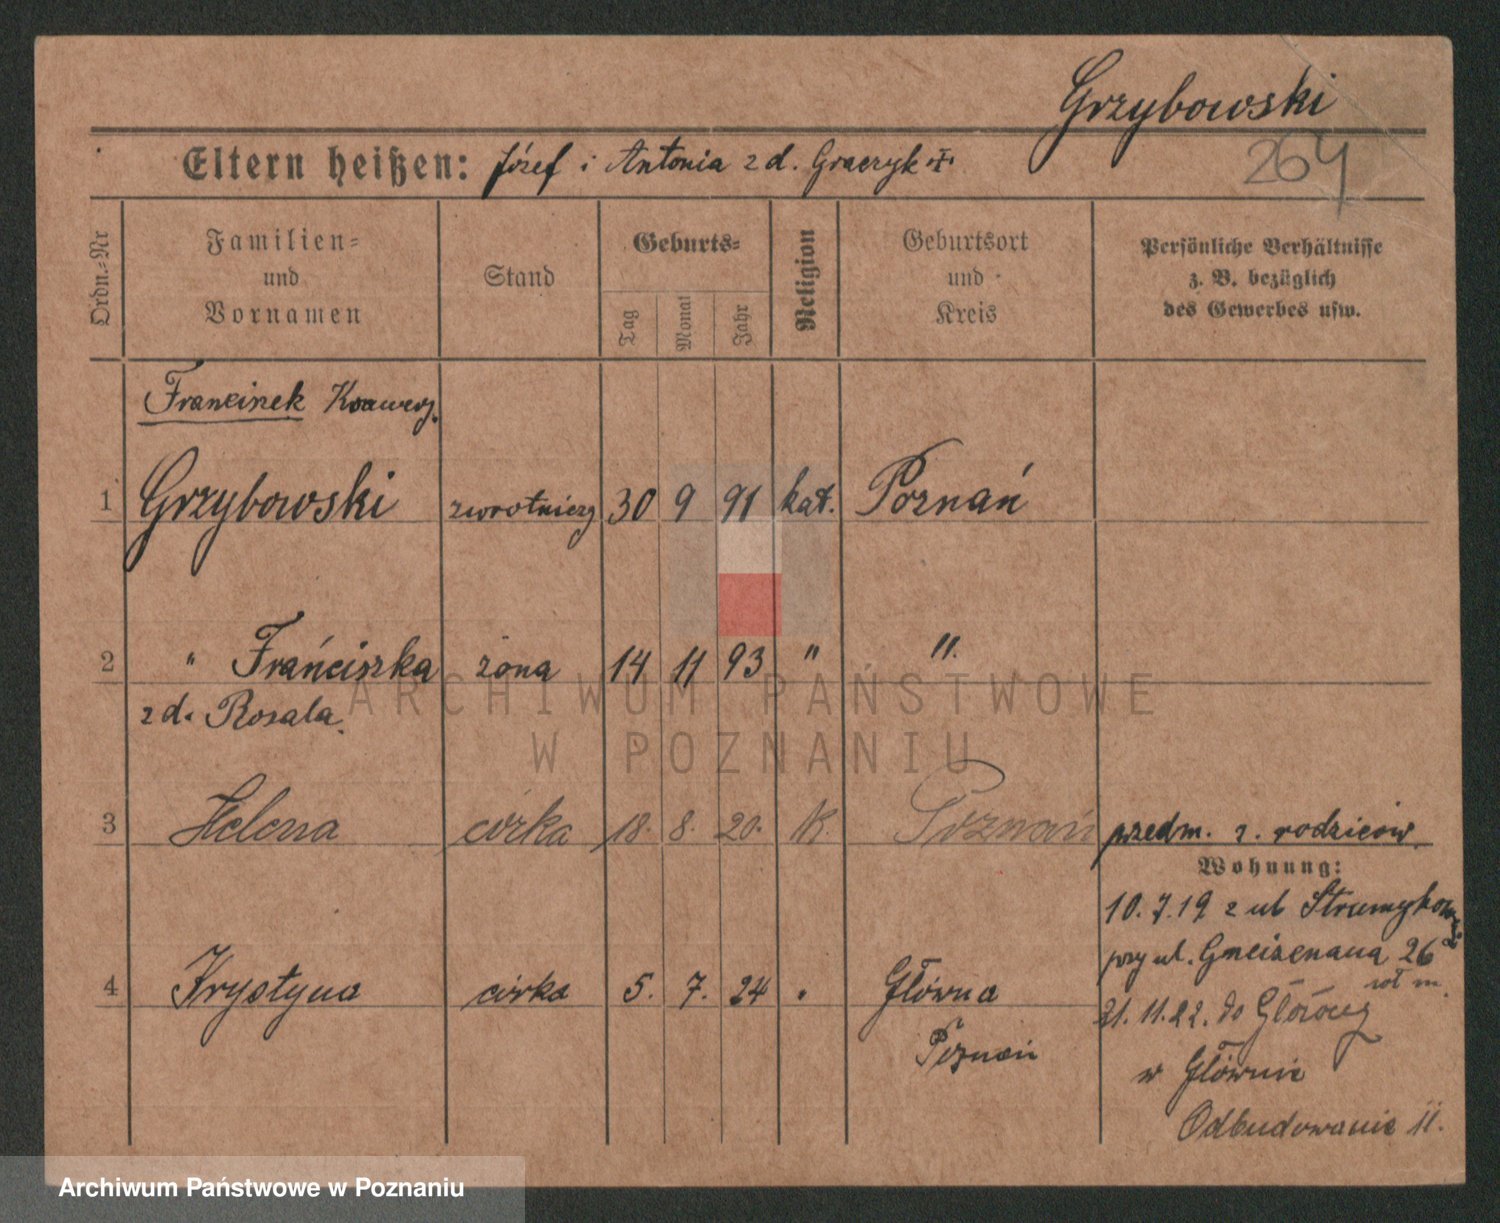 Grzybowski
264
Eltern heißen: Józef i Antonia z d. Graczyk
Ordn.-Nr
Familien- und Vornamen
Stand
Geburts-
Tag
Monat
Jahr
Religion
Geburtsort und Kreis
Persönliche Verhältnisse z. B. bezüglich des Gewerbes usw.
Franciszek Ksawery
1 Grzybowski zwrotniczy 30 9 91 kat. Poznań
2 " Franciszka żona 14 11 93 " "
z d. Rosala
3 Helena córka 18. 8. 20. K. Poznań
przedm. z. rodziców
Wohnung:
10.7.19 z ul Strumykowej
przy ul. Gneisenaua 26
4 Krystyna córka 5. 7. 24 " Główna
Poznań
21.11.22. do
w Głównie
Odbudowanie 11.
ARCHIWUM PAŃSTWOWE
W POZNANIU
Archiwum Państwowe w Poznaniu